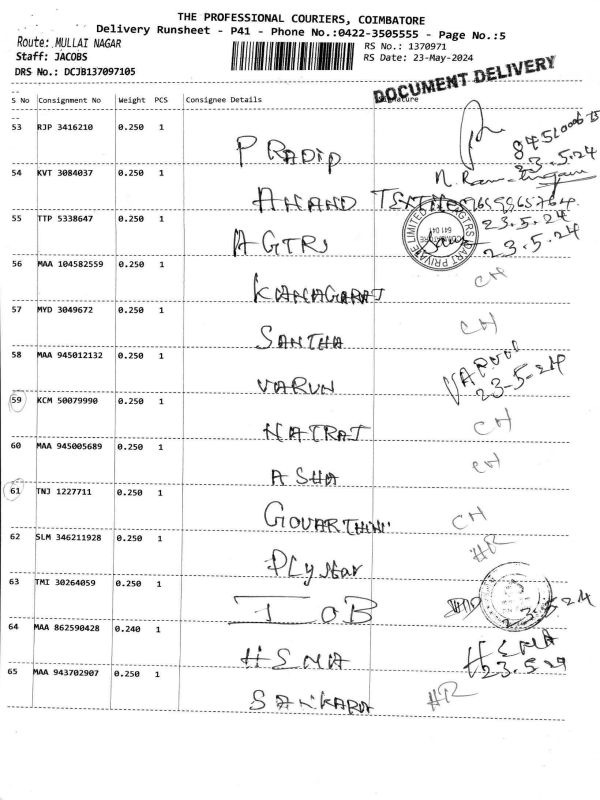 THE PROFESSIONAL COURIERS, COIMBATORE
Delivery Runsheet - P41 - Phone No.:0422-3505555 - Page No.:5
Route: MULLAI NAGAR
RS No.: 1370971
Staff: JACOBS
RS Date: 23-May-2024
DRS No.: DCJB137097105
DOCUMENT DELIVERY
S No Consignment No Weight PCS Consignee Details
53 RJP 3416210 0.250 1 P RADIP
23.5.24
54 KVT 3084037 0.250 1 ANAND
23.5.24
55 TTP 5338647 0.250 1 AGTRS
23.5.24
56 MAA 104582559 0.250 1 KANAGARAJ CH
57 MYD 3049672 0.250 1 SANTHA CH
58 MAA 945012132 0.250 1 VARUN
23-5-24
59 KCM 50079990 0.250 1 NATRAJ CH
60 MAA 945005689 0.250 1 ASHA CH
61 TNJ 1227711 0.250 1 CH
62 SLM 346211928 0.250 1 HR
63 TMI 30264059 0.250 1 IOB
23.5.24
64 MAA 862590428 0.240 1 HEMA HEMA
23.5.24
65 MAA 943702907 0.250 1 HR